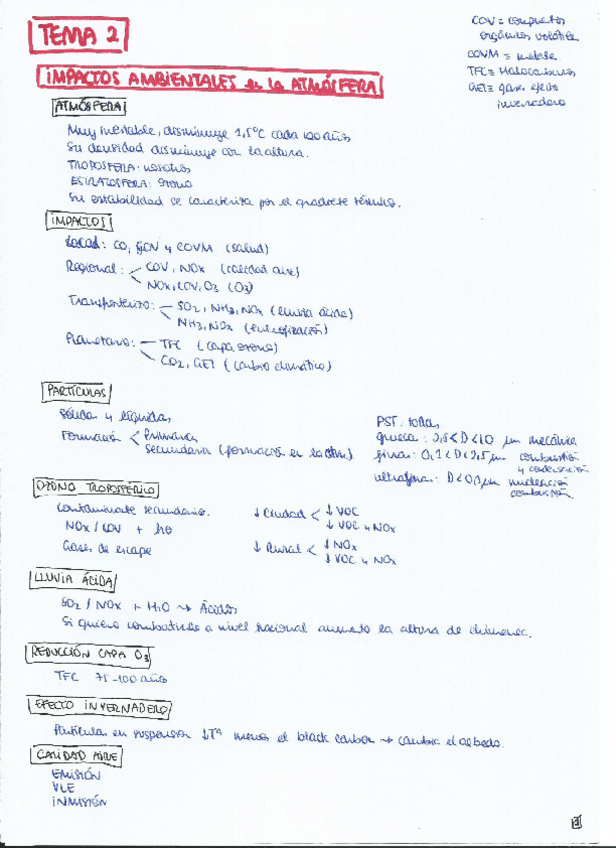 TEMA 2
COV = compuestos
orgánicos volátiles
COVM = metales
TFC = Halocarburos
GEI = gases efecto
invernadero
IMPACTOS AMBIENTALES en la ATMÓSFERA
ATMÓSFERA
Muy inestable, disminuye 1,5°C cada 100 años
Su densidad disminuye con la altura.
TROPOSFERA: nosotros
ESTRATOSFERA: ozono
Su estabilidad se caracteriza por el gradiente térmico.
IMPACTOS
Local: CO, y COVM (salud)
Regional: COV, NOx (calidad aire)
NOx, COV, O3 (O3)
Transfronterizo: SO2, NH3, NOx (lluvia ácida)
NH3, NOx (eutrofización)
Planetario: TFC (capa ozono)
CO2, GEI (cambio climático)
PARTÍCULAS
Sólidas y líquidas
Formación < Primaria
secundaria (formación en la atm)
PST. todas
gruesa: 2,5<D<10 μm mecánica
finas: 0,1<D<2,5 μm combustión
y condensación
ultrafinas: D<0,1 μm nucleación
combustión
OZONO TROPOSFÉRICO
Contaminante secundario.
NOx / COV + hσ
Gases de escape
↓ Ciudad < ↓ VOC
↓ VOC y NOx
↓ Rural < ↓ NOx
↓ VOC y NOx
LLUVIA ÁCIDA
SO2 / NOx + H2O → Ácidos
Si quiero combatirlo a nivel nacional aumento la altura de chimenea.
REDUCCIÓN CAPA O3
TFC 75-100 años
EFECTO INVERNADERO
Partículas en suspensión ↓Tª menos el black carbon → cambia el albedo.
CALIDAD AIRE
EMISIÓN
VLE
INMISIÓN